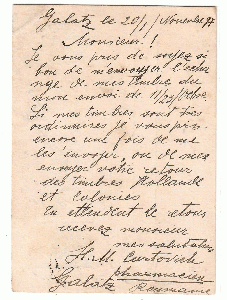 Galatz le 20/1/ Novembre 97
Monsieur!
Je vous pris de soyez si
bon de m'envoyer l'echan
nge de mes timbre du
mon envoi de 11/23/Octbre
Si mes timbres sont très
ordinnaires je vous prie
encore une fois de me
les envoyer, ou de mes
envoyer votre retour
des timbres Hollande
et colonies
En attendent le retour
recevez monsieur
mes salutations
pharmacien
Galatz Roumanie